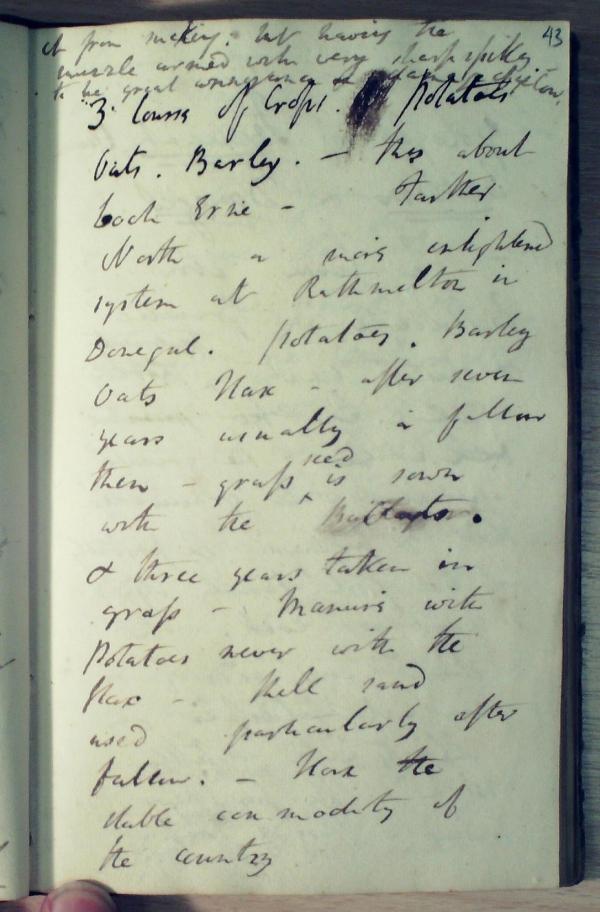 43
it from sucking. but having the
muzzle armed with very sharp spikes
to be great
3 Course of Crops. Potatoes
Oats. Barley. – this about
Loch Erne – Farther
North a more enlightened
system at Rathmelton in
Donegal. Potatoes. Barley
Oats flax – after seven
years usually a fallow
then – grass seed is sown
with the
& three years taken in
grass – Manure with
Potatoes never with the
flax – Shell sand
used particularly after
fallow. – flax the
stable commodity of
the country